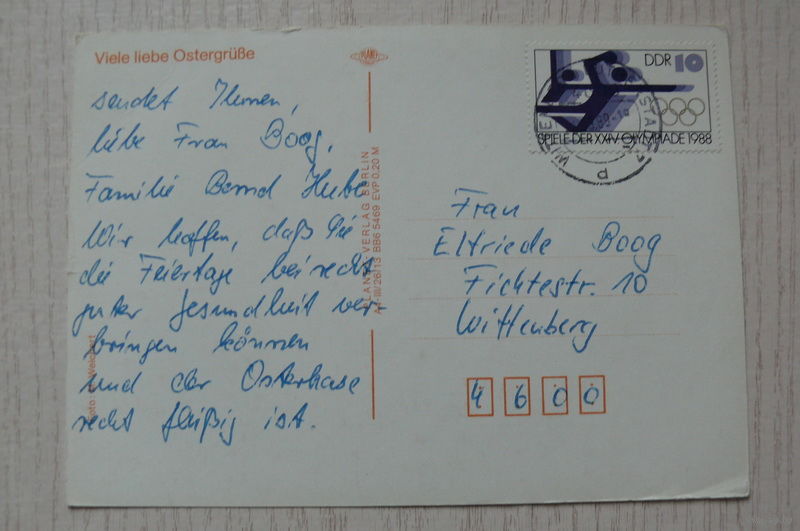 Viele liebe Ostergrüße
PLANET
sendet Ihnen,
liebe Frau Boog,
Familie Bernd Hube
Wir hoffen, daß Sie
die Feiertage bei recht
guter Gesundheit ver-
bringen können
und der Osterhase
recht fleißig ist.
PLANET-VERLAG BERLIN
III/26/13 BB6 5469 EVP 0,20 M
DDR 10
SPIELE DER XXIV. OLYMPIADE 1988
Frau
Elfriede Boog
Fichtestr. 10
Wittenberg
4600